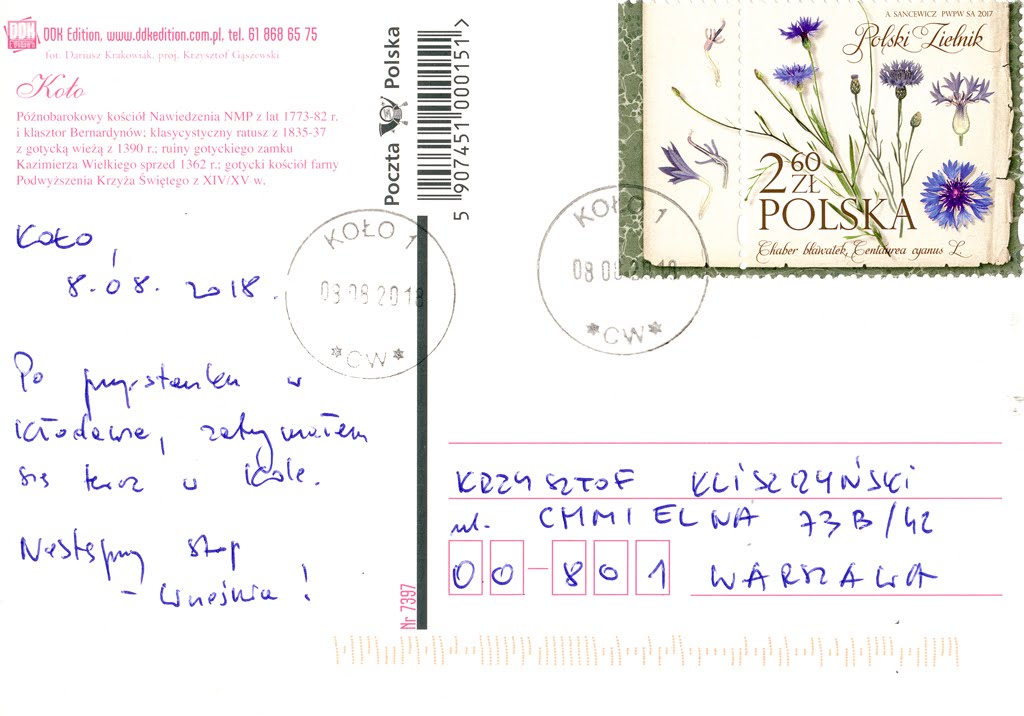 DDK Edition, www.ddkedition.com.pl, tel. 61 868 65 75
fot. Dariusz Krakowiak, proj. Krzysztof Gąszewski
Koło
Późnobarokowy kościół Nawiedzenia NMP z lat 1773-82 r.
i klasztor Bernardynów; klasycystyczny ratusz z 1835-37
z gotycką wieżą z 1390 r.; ruiny gotyckiego zamku
Kazimierza Wielkiego sprzed 1362 r.; gotycki kościół farny
Podwyższenia Krzyża Świętego z XIV/XV w.
Koło,
8.08.2018.
Po przystanku w
Kłodawie, zatrzymałem
się teraz w Kole.
Następny stop
- Września!
Poczta Polska
5 907451 000151 >
Nr 7397
A SANCEWICZ PWPW SA 2017
Polski Zielnik
2 60
ZŁ
POLSKA
Chaber bławatek, Centaurea cyanus L.
KOŁO 1
08 08 2018
*CW*
KOŁO 1
08 08 2018
*CW*
KRZYSZTOF KLISZCZYŃSKI
ul. CHMIELNA 73B/42
00-801 WARSZAWA